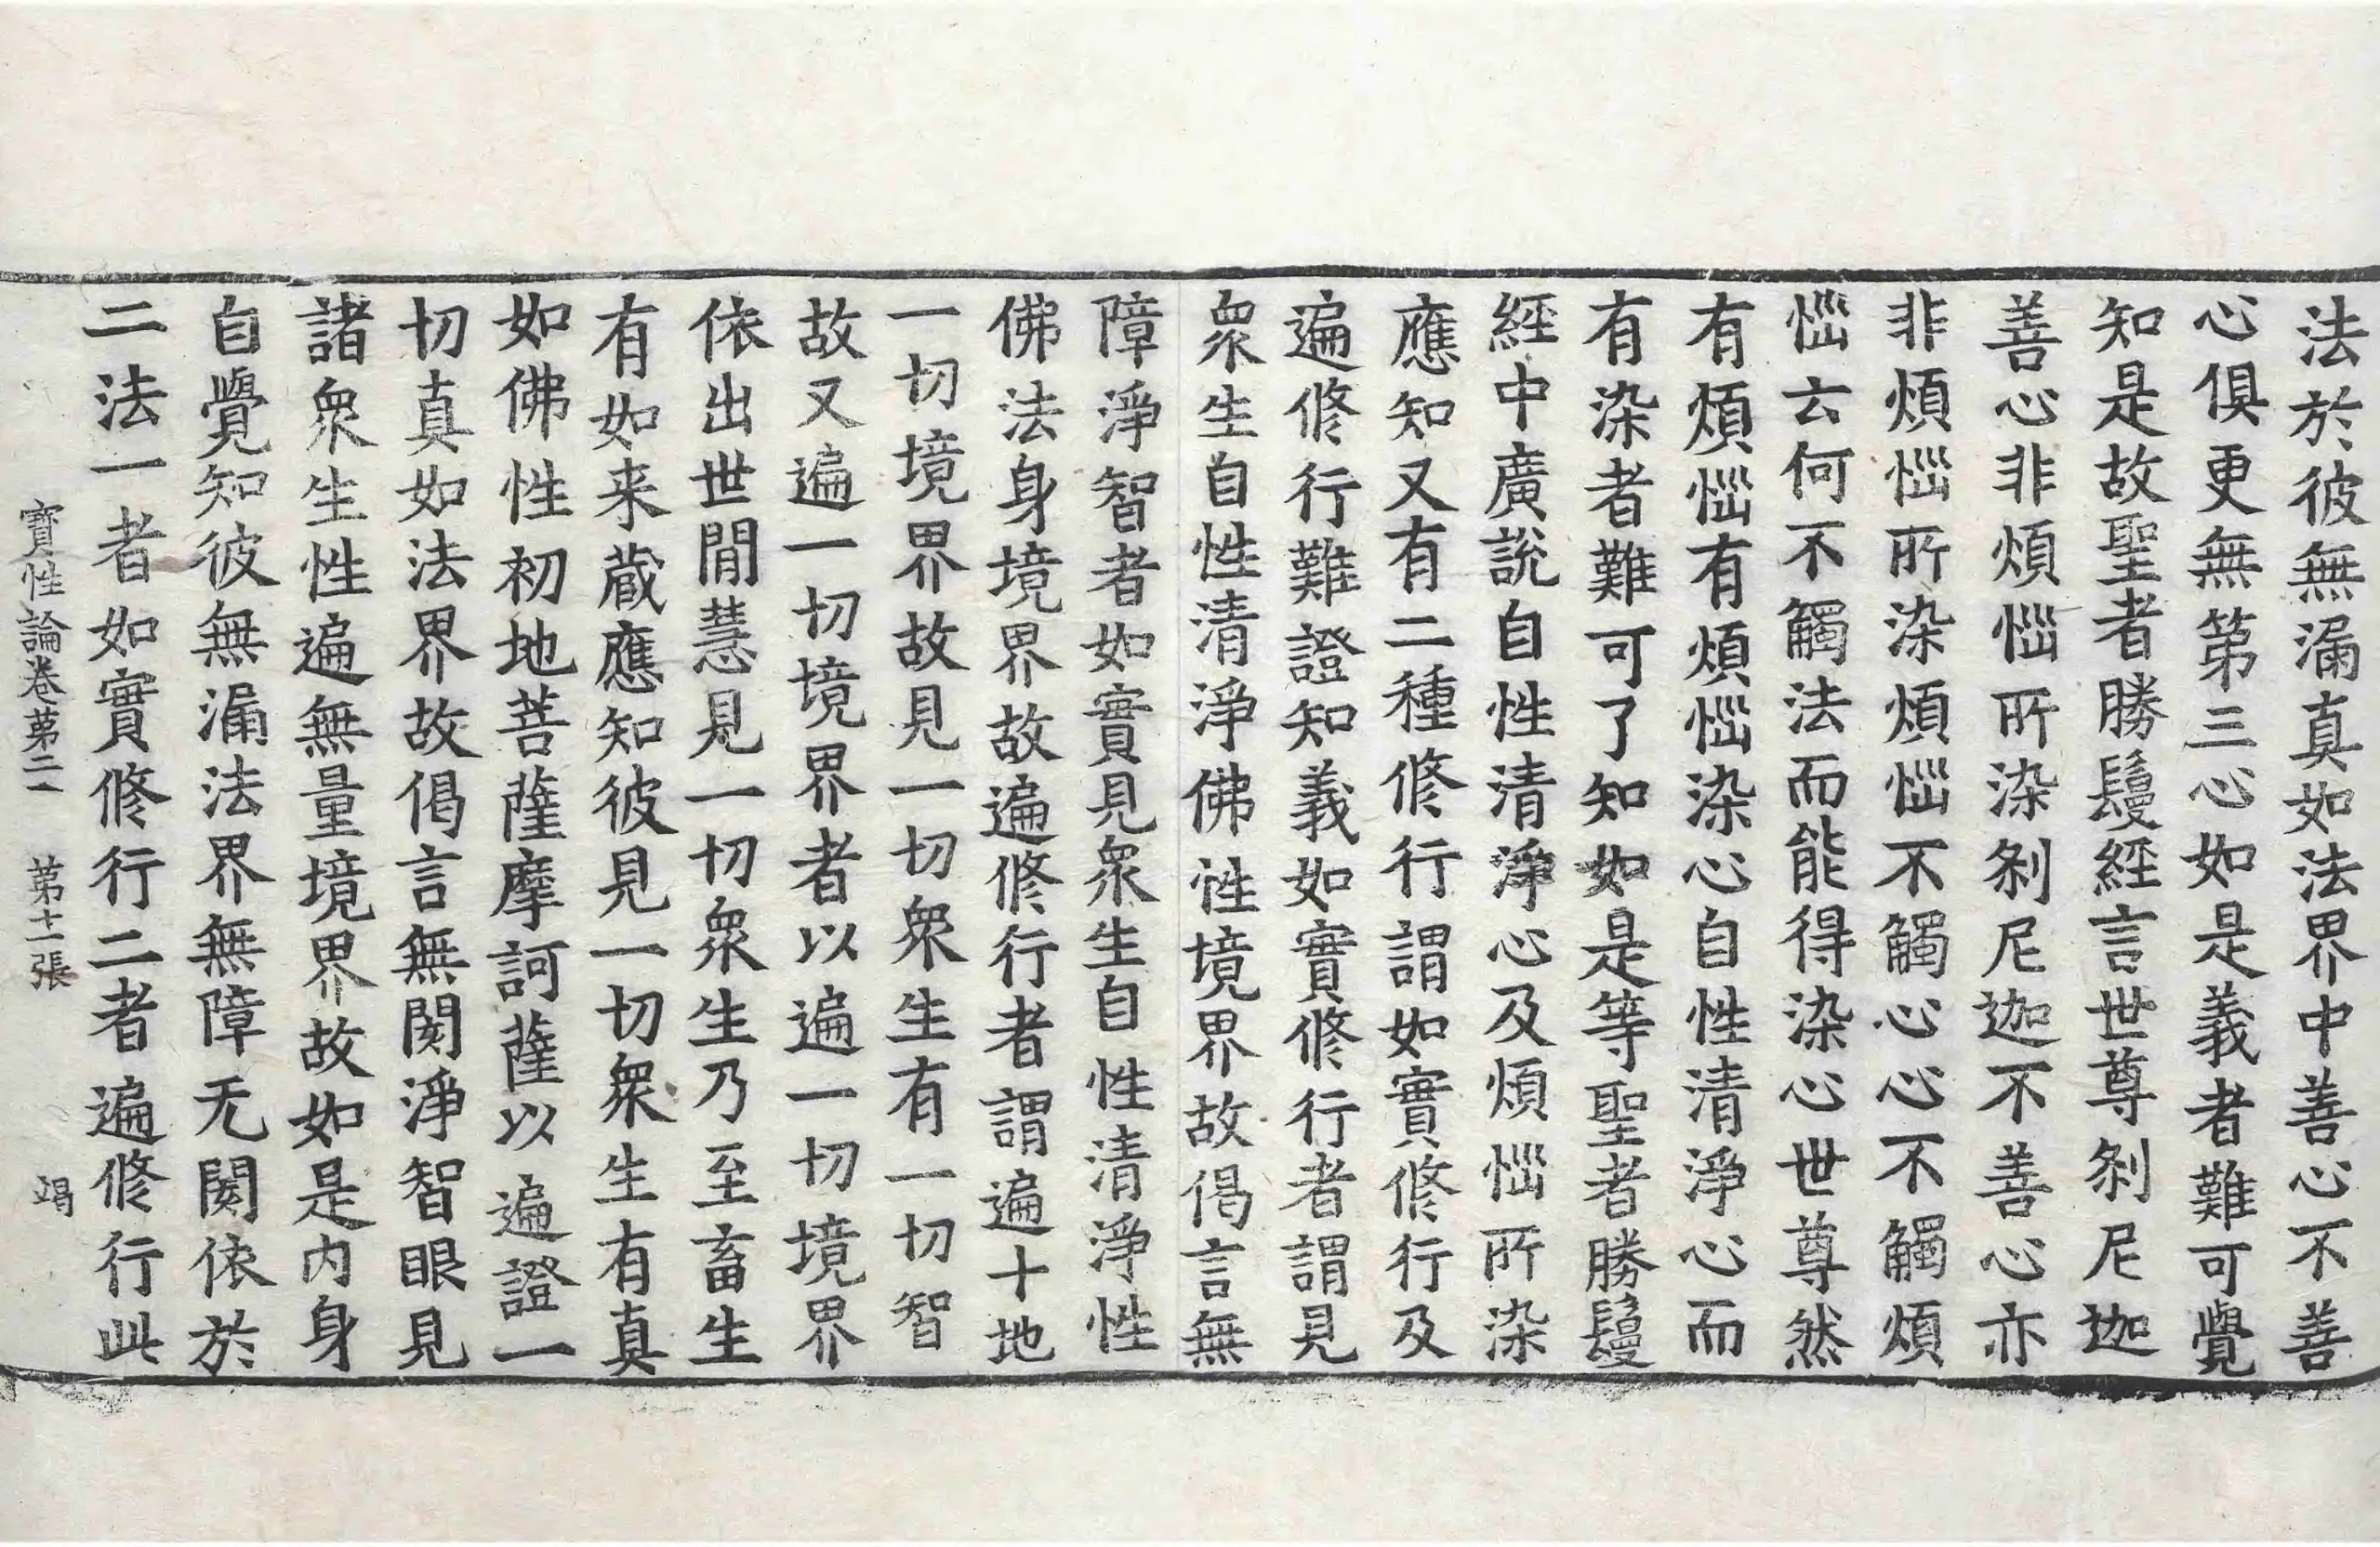 法於彼無漏真如法界中善心不善
心俱更無第三心如是義者難可覺
知是故聖者勝鬘經言世尊剎尼迦
善心非煩惱所染剎尼迦不善心亦
非煩惱所染煩惱不觸心心不觸煩
惱云何不觸法而能得染心世尊然
有煩惱有煩惱染心自性清淨心而
有染者難可了知如是等聖者勝鬘
經中廣說自性清淨心及煩惱所染
應知又有二種修行謂如實修行及
遍修行難證知義如實修行者謂見
衆生自性清淨佛性境界故偈言無
障淨智者如實見衆生自性清淨性
佛法身境界故遍修行者謂遍十地
一切境界故見一切衆生有一切智
故又遍一切境界者以遍一切境界
依出世閒慧見一切衆生乃至畜生
有如来藏應知彼見一切衆生有真
如佛性初地菩薩摩訶薩以遍證一
切真如法界故偈言無閡淨智眼見
諸衆生性遍無量境界故如是内身
自覺知彼無漏法界無障无閡依於
二法一者如實修行二者遍修行此
寶性論卷苐二 苐十二張 竭